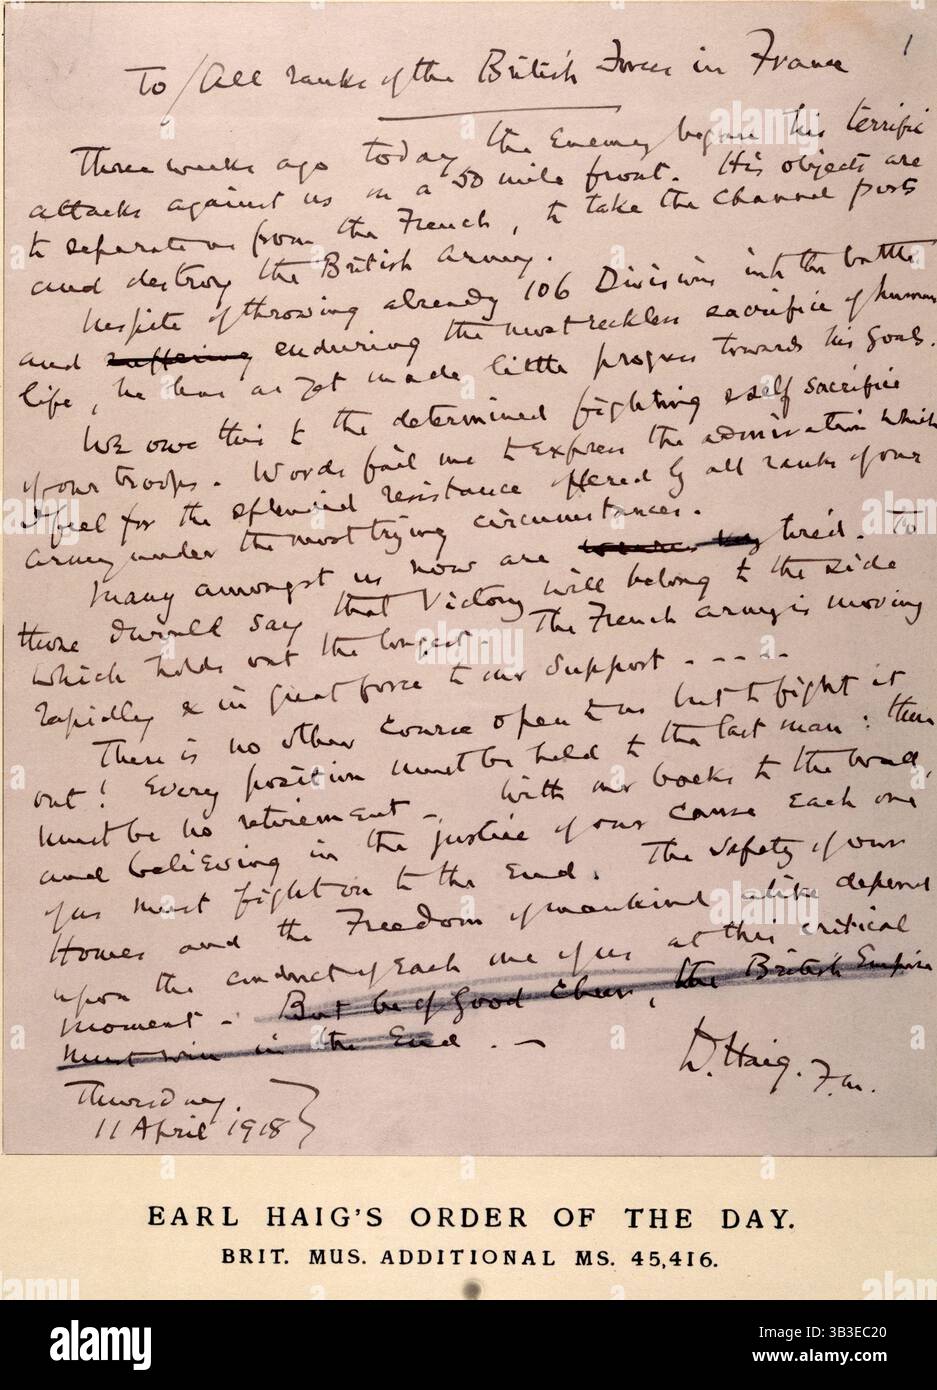 1
To / All ranks of the British Forces in France
Three weeks ago today the Enemy began his terrific
attacks against us on a 50 mile front. His objects are
to separate us from the French, to take the Channel ports
and destroy the British Army.
Inspite of throwing already 106 Divisions into the battle
and suffering enduring the most reckless sacrifice of human
life, he has as yet made little progress towards his goals.
We owe this to the determined fighting & self sacrifice
of our troops. Words fail me to express the admiration which
I feel for the splendid resistance offered by all ranks of our
army under the most trying circumstances.
Many amongst us now are tired. To
those I would say that Victory will belong to the side
which holds out the longest. The French Army is moving
rapidly & in great force to our support - - - - -
There is no other course open to us but to fight it
out! Every position must be held to the last man: there
must be no retirement -. With our backs to the wall,
and believing in the justice of our cause each one
of us must fight on to the End. The safety of our
Homes and the Freedom of mankind alike depend
upon the conduct of Each one of us at this critical
moment -. But be of Good Cheer, the British Empire
must win in the End. -
D. Haig. F.M.
Thursday.
11 April 1918
EARL HAIG'S ORDER OF THE DAY.
BRIT. MUS. ADDITIONAL MS. 45,416.
alamy
Image ID: 2B3EC20
www.alamy.com